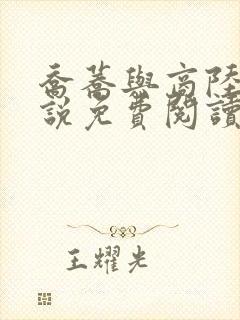 喬蕎與高陸
說免費閱讀
王耀光